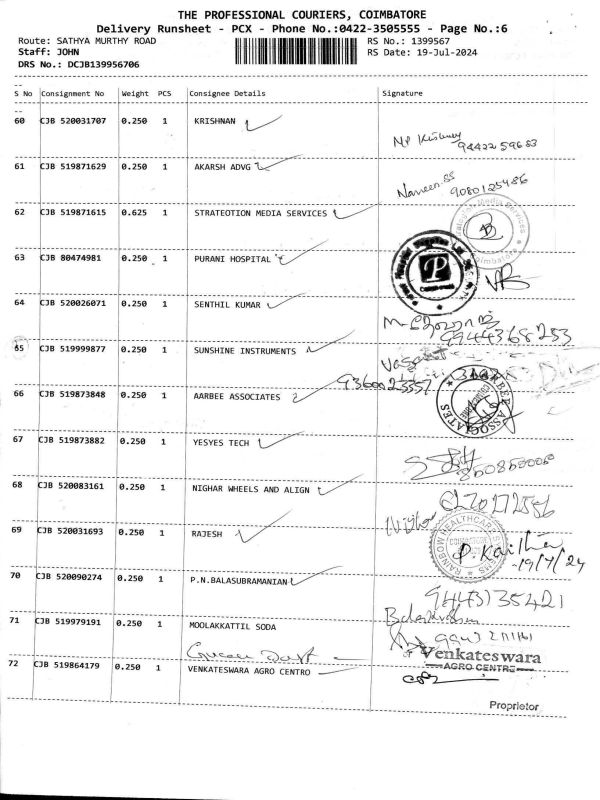 THE PROFESSIONAL COURIERS, COIMBATORE
Delivery Runsheet - PCX - Phone No.:0422-3505555 - Page No.:6
Route: SATHYA MURTHY ROAD RS No.: 1399567
Staff: JOHN RS Date: 19-Jul-2024
DRS No.: DCJB139956706
S No Consignment No Weight PCS Consignee Details Signature
60 CJB 520031707 0.250 1 KRISHNAN
94422 59683
61 CJB 519871629 0.250 1 AKARSH ADVG
Naveen.SS
9080125486
62 CJB 519871615 0.625 1 STRATEOTION MEDIA SERVICES
63 CJB 80474981 0.250 1 PURANI HOSPITAL
P
64 CJB 520026071 0.250 1 SENTHIL KUMAR
65 CJB 519999877 0.250 1 SUNSHINE INSTRUMENTS
66 CJB 519873848 0.250 1 AARBEE ASSOCIATES
AARBEE ASSOCIATES
67 CJB 519873882 0.250 1 YESYES TECH
68 CJB 520083161 0.250 1 NIGHAR WHEELS AND ALIGN
69 CJB 520031693 0.250 1 RAJESH
RAINBOW HEALTHCARE
19/7/24
70 CJB 520090274 0.250 1 P.N.BALASUBRAMANIAN
9443135421
71 CJB 519979191 0.250 1 MOOLAKKATTIL SODA
72 CJB 519864179 0.250 1 VENKATESWARA AGRO CENTRO
Venkateswara
AGRO CENTRE
Proprietor